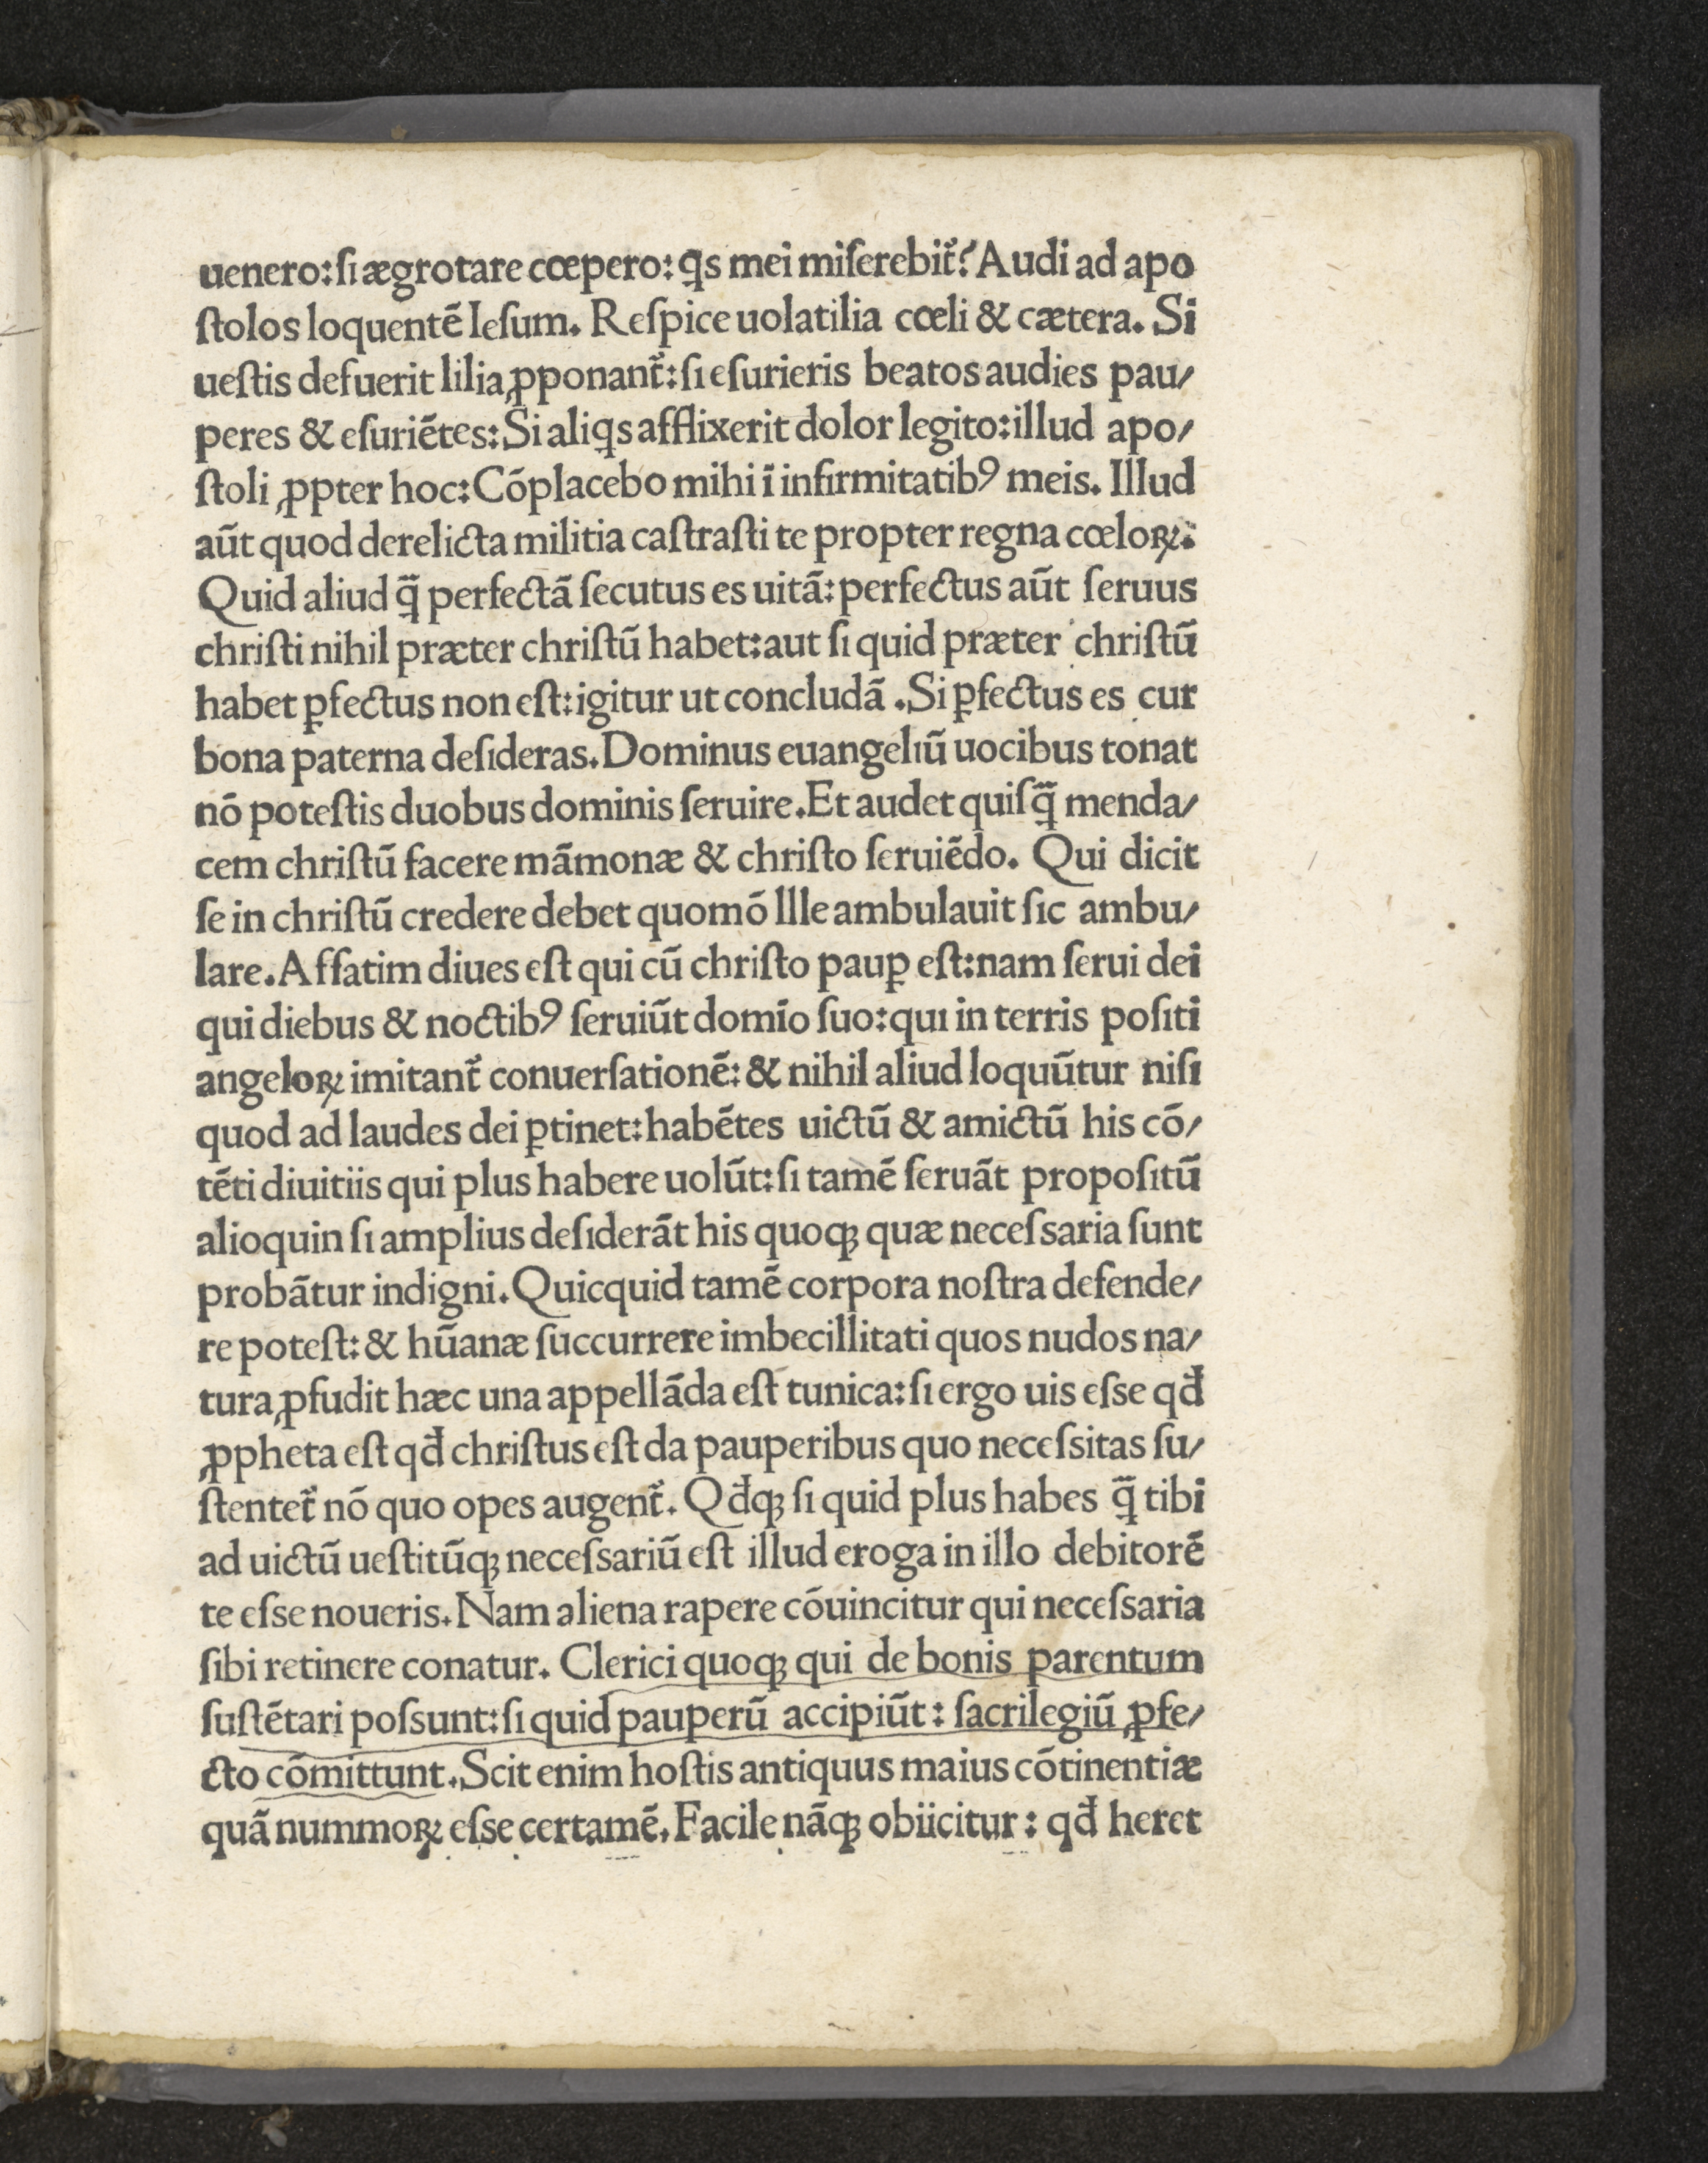 uenero: ſi ægrotare cœpero: ꝗs mei miſerebit᷑? Audi ad apo
ſtolos loquentē Ieſum. Reſpice uolatilia cœli & cætera. Si
ueſtis defuerit lilia ꝓponant᷑: ſi eſurieris beatos audies pau/
peres & eſuriētes: Si aliꝗs afflixerit dolor legito: illud apo/
ſtoli ꝓpter hoc: Cōplacebo mihi ī infirmitatibꝰ meis. Illud
aūt quod derelicta militia caſtraſti te propter regna cœloꝝ:
Quid aliud q̄̃ perfectā ſecutus es uitā: perfectus aūt ſeruus
chriſti nihil præter chriſtū habet: aut ſi quid præter chriſtū
habet ꝑfectus non eſt: igitur ut concludā .Si ꝑfectus es cur
bona paterna deſideras. Dominus euangeliū uocibus tonat
nō poteſtis duobus dominis ſeruire. Et audet quiſq̄̃ menda/
cem chriſtū facere māmonæ & chriſto ſeruiēdo. Qui dicit
ſe in chriſtū credere debet quomō llle ambulauit ſic ambu/
lare. Affatim diues eſt qui cū chriſto pauꝑ eſt: nam ſerui dei
qui diebus & noctibꝰ ſeruiūt domīo ſuo: qui in terris poſiti
angeloꝝ imitant᷑ conuerſationē: & nihil aliud loquūtur niſi
quod ad laudes dei ꝑtinet: habētes uictū & amictū his cō/
tēti diuitiis qui plus habere uolūt: ſi tamē ſeruāt propoſitū
alioquin ſi amplius deſiderāt his quoqꝫ quæ neceſsaria ſunt
probātur indigni. Quicquid tamē corpora noſtra defende/
re poteſt: & hūanæ ſuccurrere imbecillitati quos nudos na/
tura ꝓfudit hæc una appellāda eſt tunica: ſi ergo uis eſse qđ
ꝓpheta eſt qđ chriſtus eſt da pauperibus quo neceſsitas ſu/
ſtentet᷑ nō quo opes augent᷑. Qđqꝫ ſi quid plus habes q̄̃ tibi
ad uictū ueſtitūqꝫ neceſsariū eſt illud eroga in illo debitorē
te eſse noueris. Nam aliena rapere cōuincitur qui neceſsaria
ſibi retinere conatur. Clerici quoqꝫ qui de bonis parentum
ſuſtētari poſsunt: ſi quid pauperū accipiūt: ſacrilegiū ꝓfe/
cto cōmittunt. Scit enim hoſtis antiquus maius cōtinentiæ
quā nummoꝝ eſse certamē. Facile nāqꝫ obiicitur: qđ heret